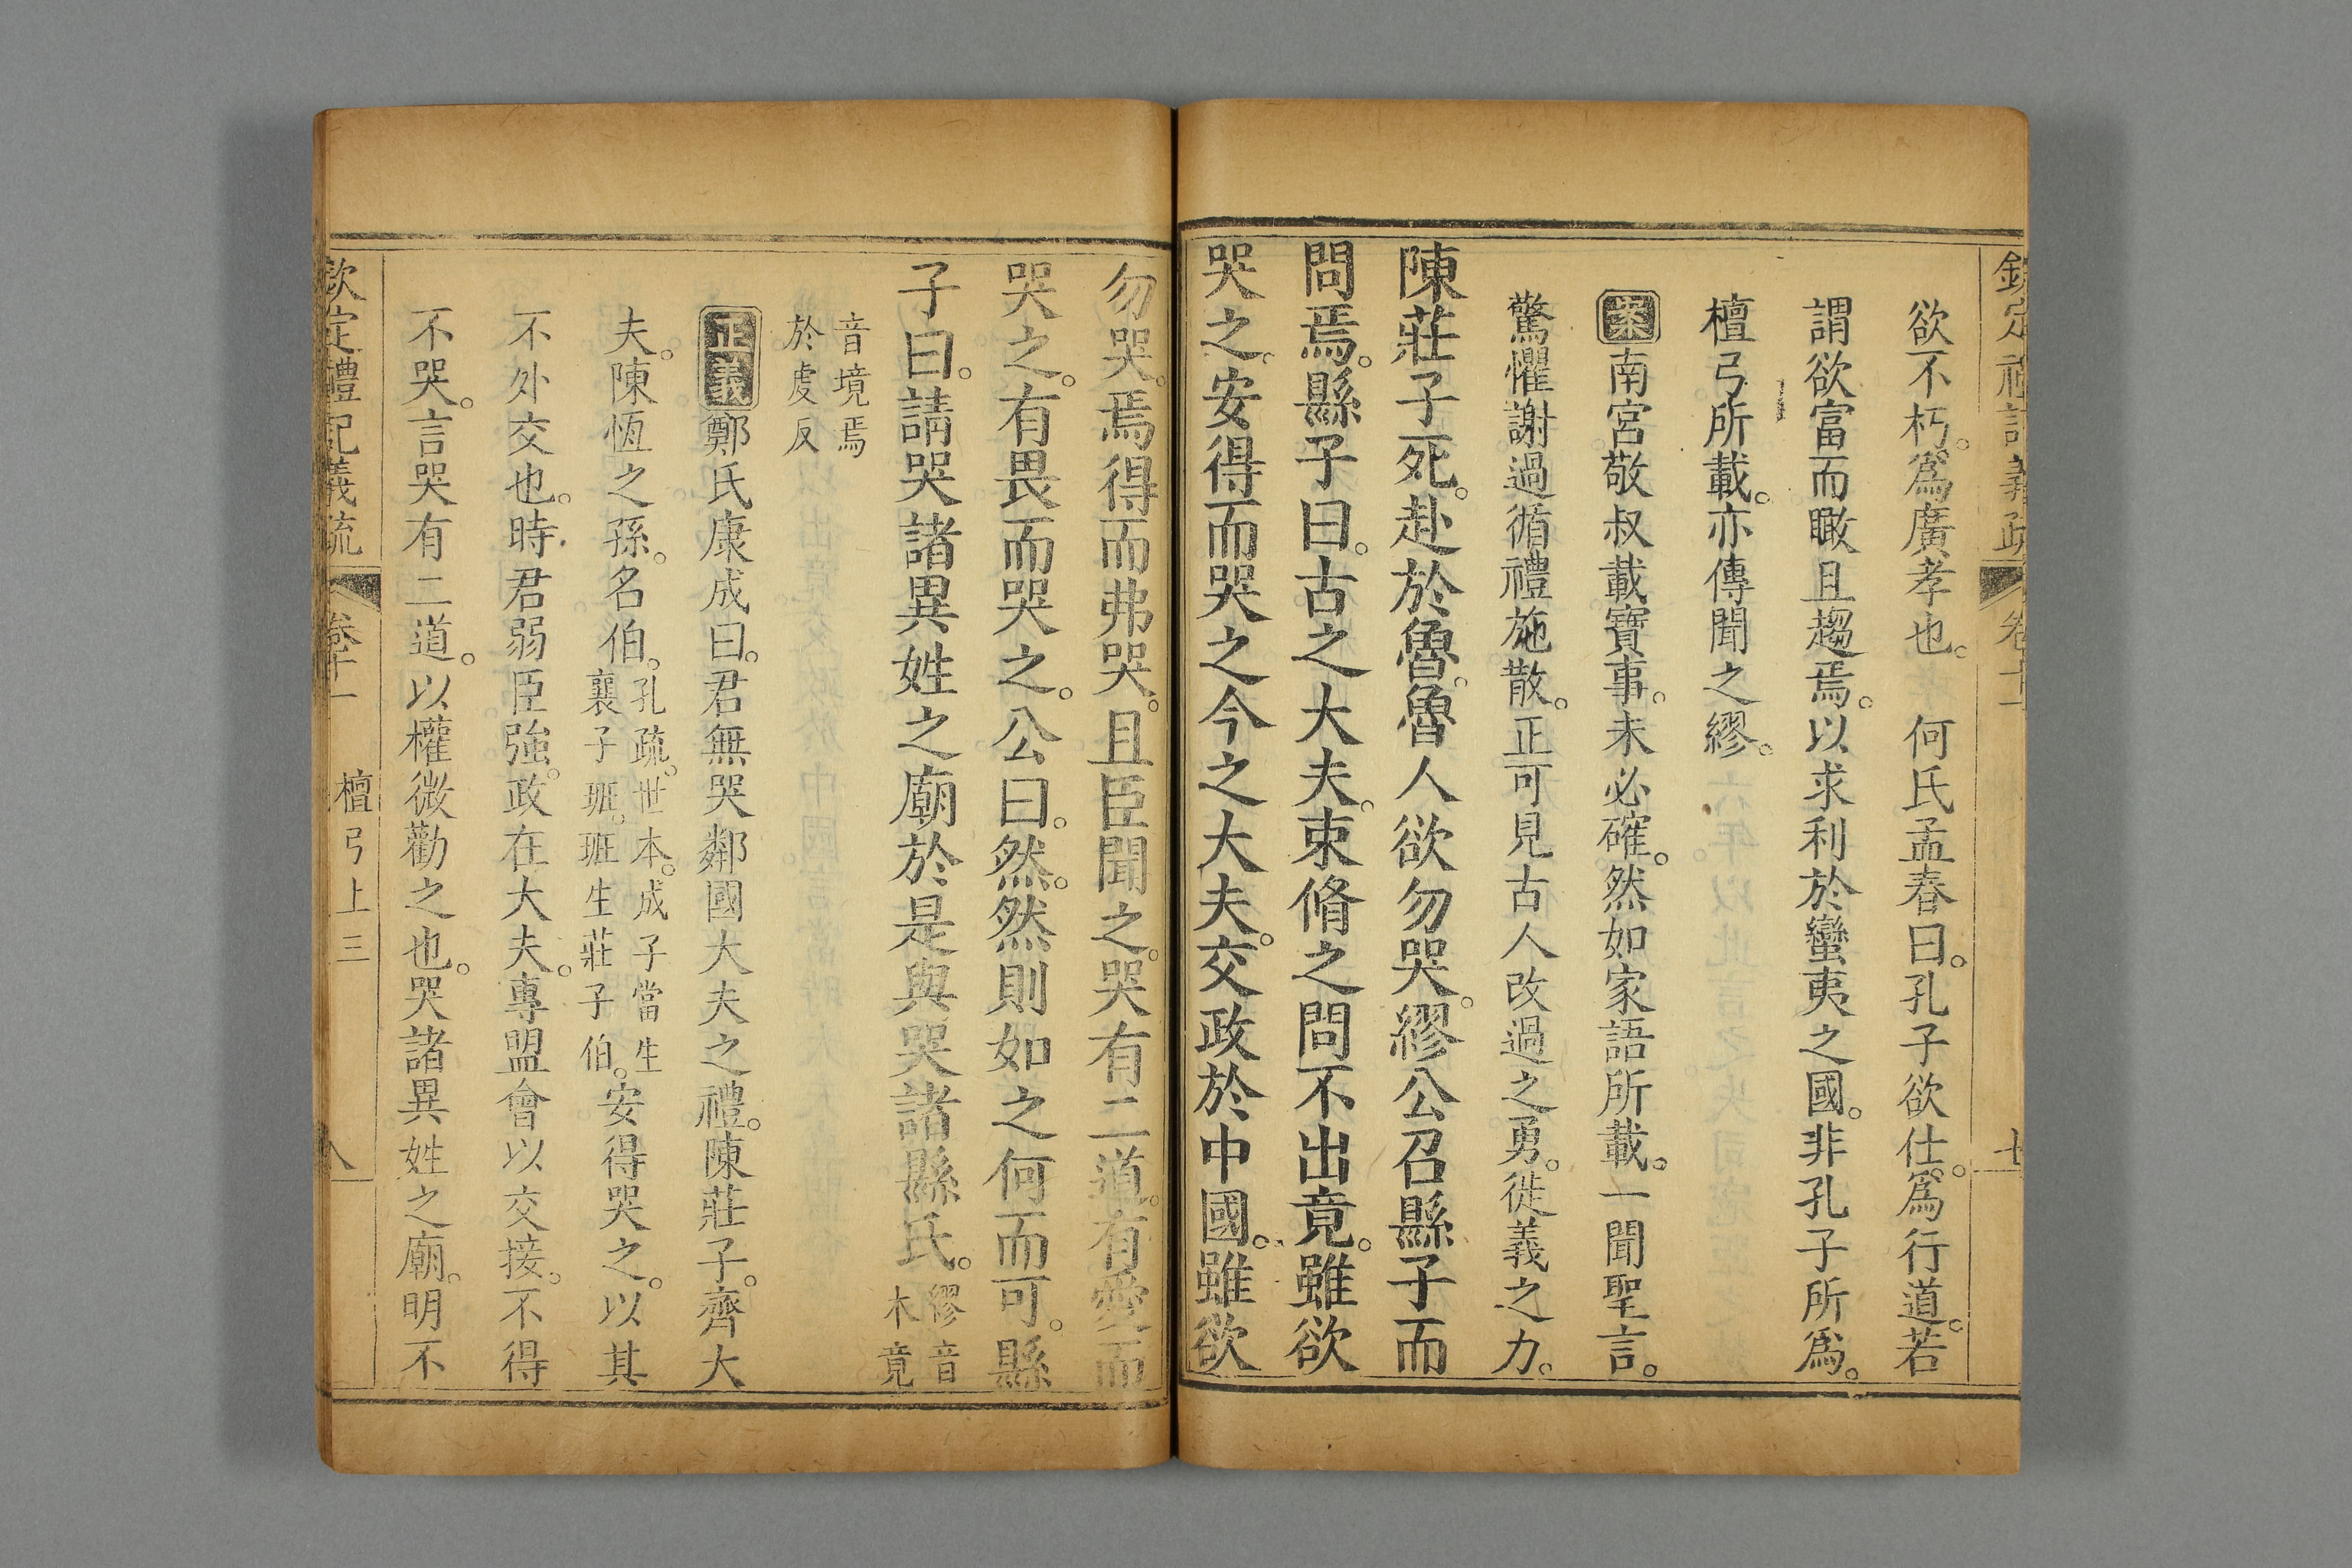 欽定禮記義疏 卷十一 七
欲不朽。爲廣孝也。 何氏孟春曰。孔子欲仕。爲行道。若
謂欲富而瞰且趨焉。以求利於蠻夷之國。非孔子所爲。
檀弓所載。亦傳聞之繆。
案南宮敬叔載寶事。未必確。然如家語所載。一聞聖言。
驚懼謝過循禮施散。正可見古人改過之勇。徙義之力。
陳莊子死。赴於魯。魯人欲勿哭。繆公召縣子而
問焉。縣子曰。古之大夫。束脩之問不出竟。雖欲
哭之。安得而哭之今之大夫。交政於中國。雖欲
勿哭。焉得而弗哭。且臣聞之。哭有二道。有愛而
哭之。有畏而哭之。公曰。然。然則如之何而可。縣
子曰。請哭諸異姓之廟於是與哭諸縣氏。繆音
木竟
音境焉
於虔反
正義鄭氏康成曰。君無哭鄰國大夫之禮。陳莊子。齊大
夫。陳恆之孫。名伯。孔疏。世本。成子當生
襄子班。班生莊子伯。安得哭之。以其
不外交也。時君弱臣強。政在大夫。專盟會以交接。不得
不哭。言哭有二道。以權微勸之也。哭諸異姓之廟。明不
欽定禮記義疏 卷十一 檀弓上三 八